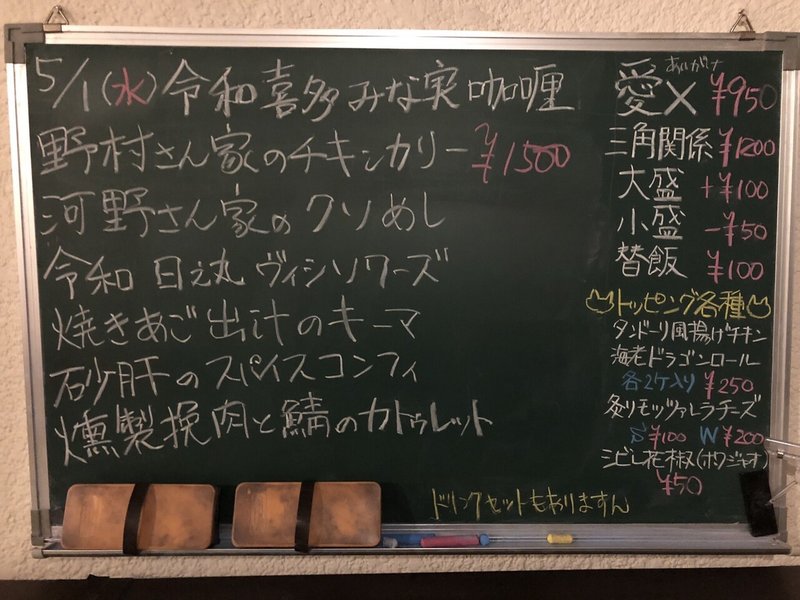 5/1(水)令和喜多みな実 咖喱
野村さん家のチキンカリー ¥1500
河野さん家のクソめし
令和 日之丸 ヴィシソワーズ
焼きあご出汁のキーマ
砂肝のスパイスコンフィ
燻製挽肉と鯖のカトゥレット
愛× ¥950
三角関係 ¥1200
大盛 +¥100
小盛 -¥50
替飯 ¥100
トッピング各種
タンドーリ風揚げチキン
海老ドラゴンロール
各2ケ入り ¥250
炙りモッツァレラチーズ
S ¥100 W ¥200
シビレ花椒(ホワジャオ)
¥50
ドリンクセットもおりますん